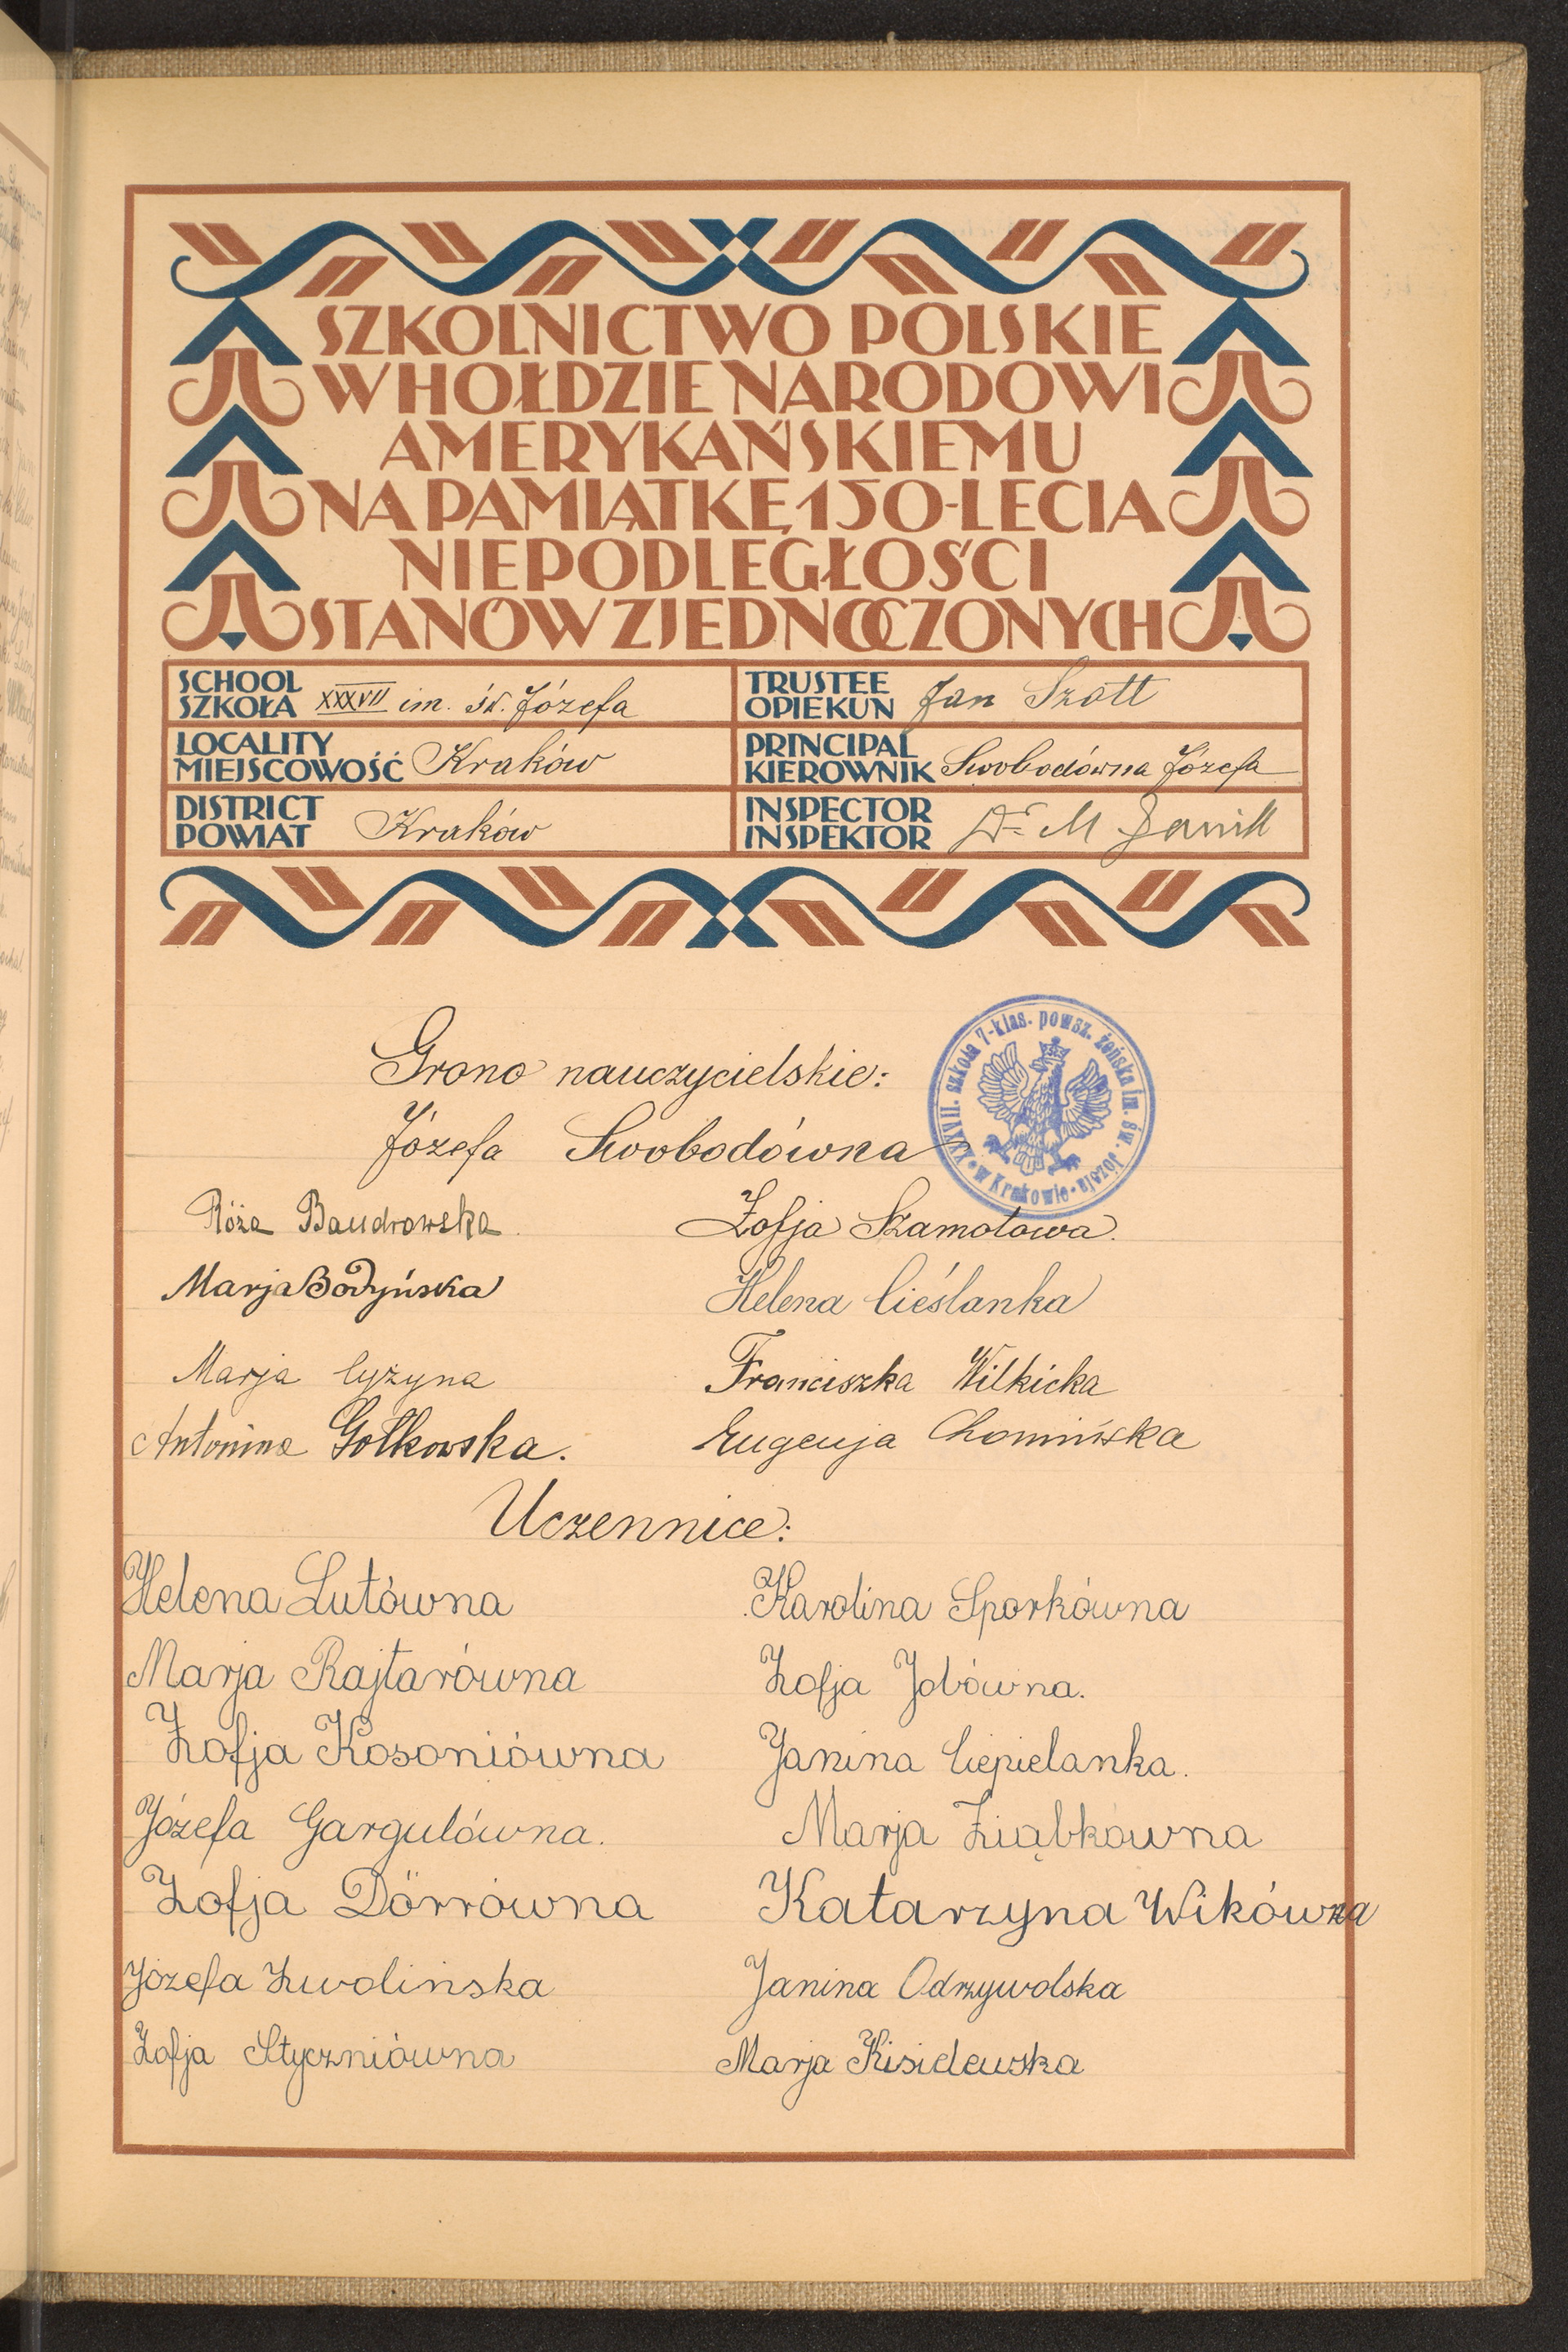 SZKOLNICTWO POLSKIE
W HOŁDZIE NARODOWI
AMERYKAŃSKIEMU
NA PAMIĄTKĘ 150-LECIA
NIEPODLEGŁOŚCI
STANÓW ZJEDNOCZONYCH
SCHOOL
SZKOŁA XXXVII im. św. Józefa
TRUSTEE
OPIEKUN Jan Szott
LOCALITY
MIEJSCOWOŚĆ Kraków
PRINCIPAL
KIEROWNIK Swobodówna Józefa
DISTRICT
POWIAT Kraków
INSPECTOR
INSPEKTOR Dr M Janik
Grono nauczycielskie:
XXXVII. szkoła 7-klas. powsz. żeńska im. św. Józefa w Krakowie
Józefa Swobodówna
Róża Baudrowska
Zofja Szamotowa.
Marja Bodyńska
Helena Cieślanka
Marja Cyzyna
Franciszka Wilkicka
Antonina Gołkowska.
Eugenja Chomińska
Uczennice:
Helena Lutówna
Karolina Sporkówna
Marja Rajtarówna
Zofja Jobówna.
Zofja Kosoniówna
Janina Ciepielanka.
Józefa Gargulówna.
Marja Ziąbkowna
Zofja Dörrówna
Katarzyna Wikówna
Józefa Zwolińska
Janina Odrzywolska
Zofja Styczniówna
Marja Kisielewska